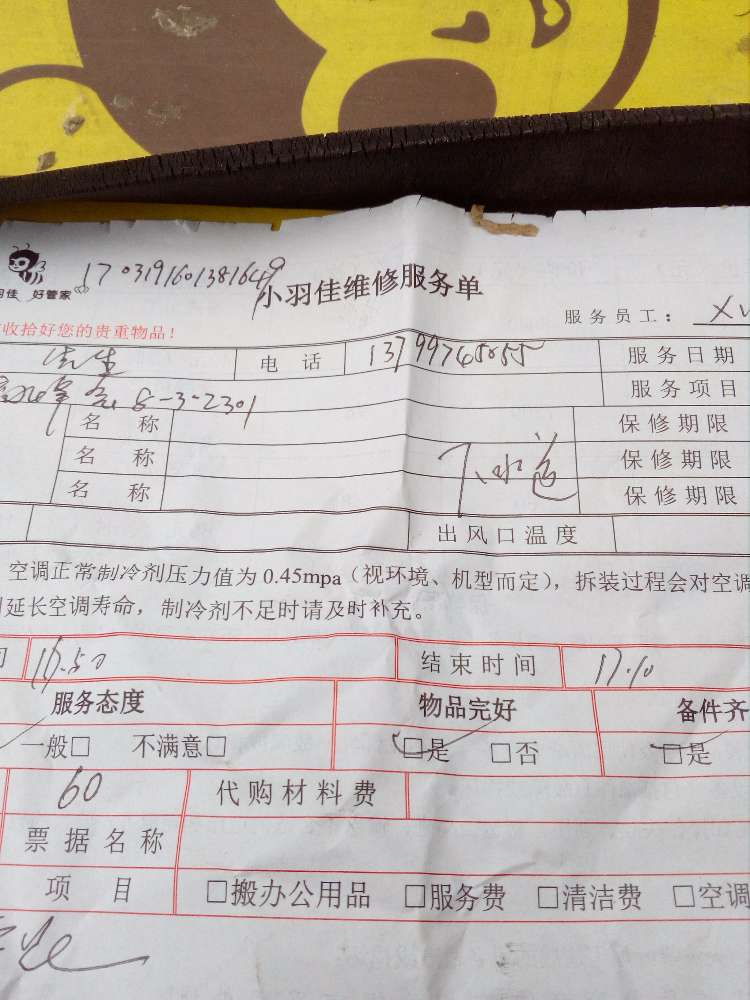 1703191601381649
小羽佳维修服务单
羽佳 好管家
服务员工：
收拾好您的贵重物品！
电话 13799745855 服务日期
8-3-2301 服务项目
名称 保修期限
名称 下水道 保修期限
名称 保修期限
出风口温度
空调正常制冷剂压力值为 0.45mpa（视环境、机型而定），拆装过程会对空调
延长空调寿命，制冷剂不足时请及时补充。
16.50 结束时间 17.10
服务态度 物品完好 备件齐
一般□ 不满意□ □是 □否 □是
60 代购材料费
票据名称
项目 □搬办公用品 □服务费 □清洁费 □空调